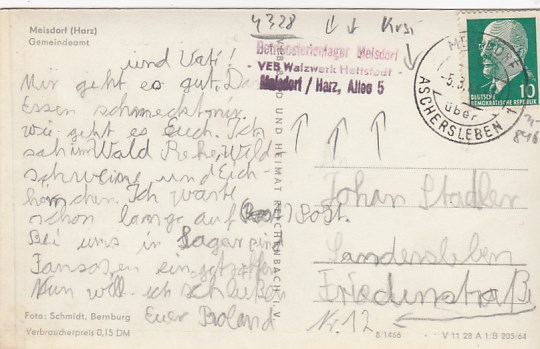 4328
Krsr
Meisdorf (Harz)
Gemeindeamt
und Vati!
Mir geht es gut. Das
Essen schmeckt mir.
wie geht es Euch. Ich
sah im Wald Rehe, Wild
schweine und Eich-
hörnchen. Ich warte
schon lange auf Post.
Bei uns in Lager sind
Fansosen eingetroffen
Nun will ich schließen
Euer Roland
Foto: Schmidt, Bernburg
Verbraucherpreis 0,15 DM
Betriebsferienlager Meisdorf
VEB Walzwerk Hettstedt
Meisdorf / Harz, Allee 5
UND HEIMAT REICHENBACH I. V.
MEISDORF
5.3.
über
ASCHERSLEBEN 1
10
DEUTSCHE
DEMOKRATISCHE REPUBLIK
Johan Stadler
Sandersleben
Friedenstraße
Nr. 12
B 1466
V 11 28 A 1/B 205/64